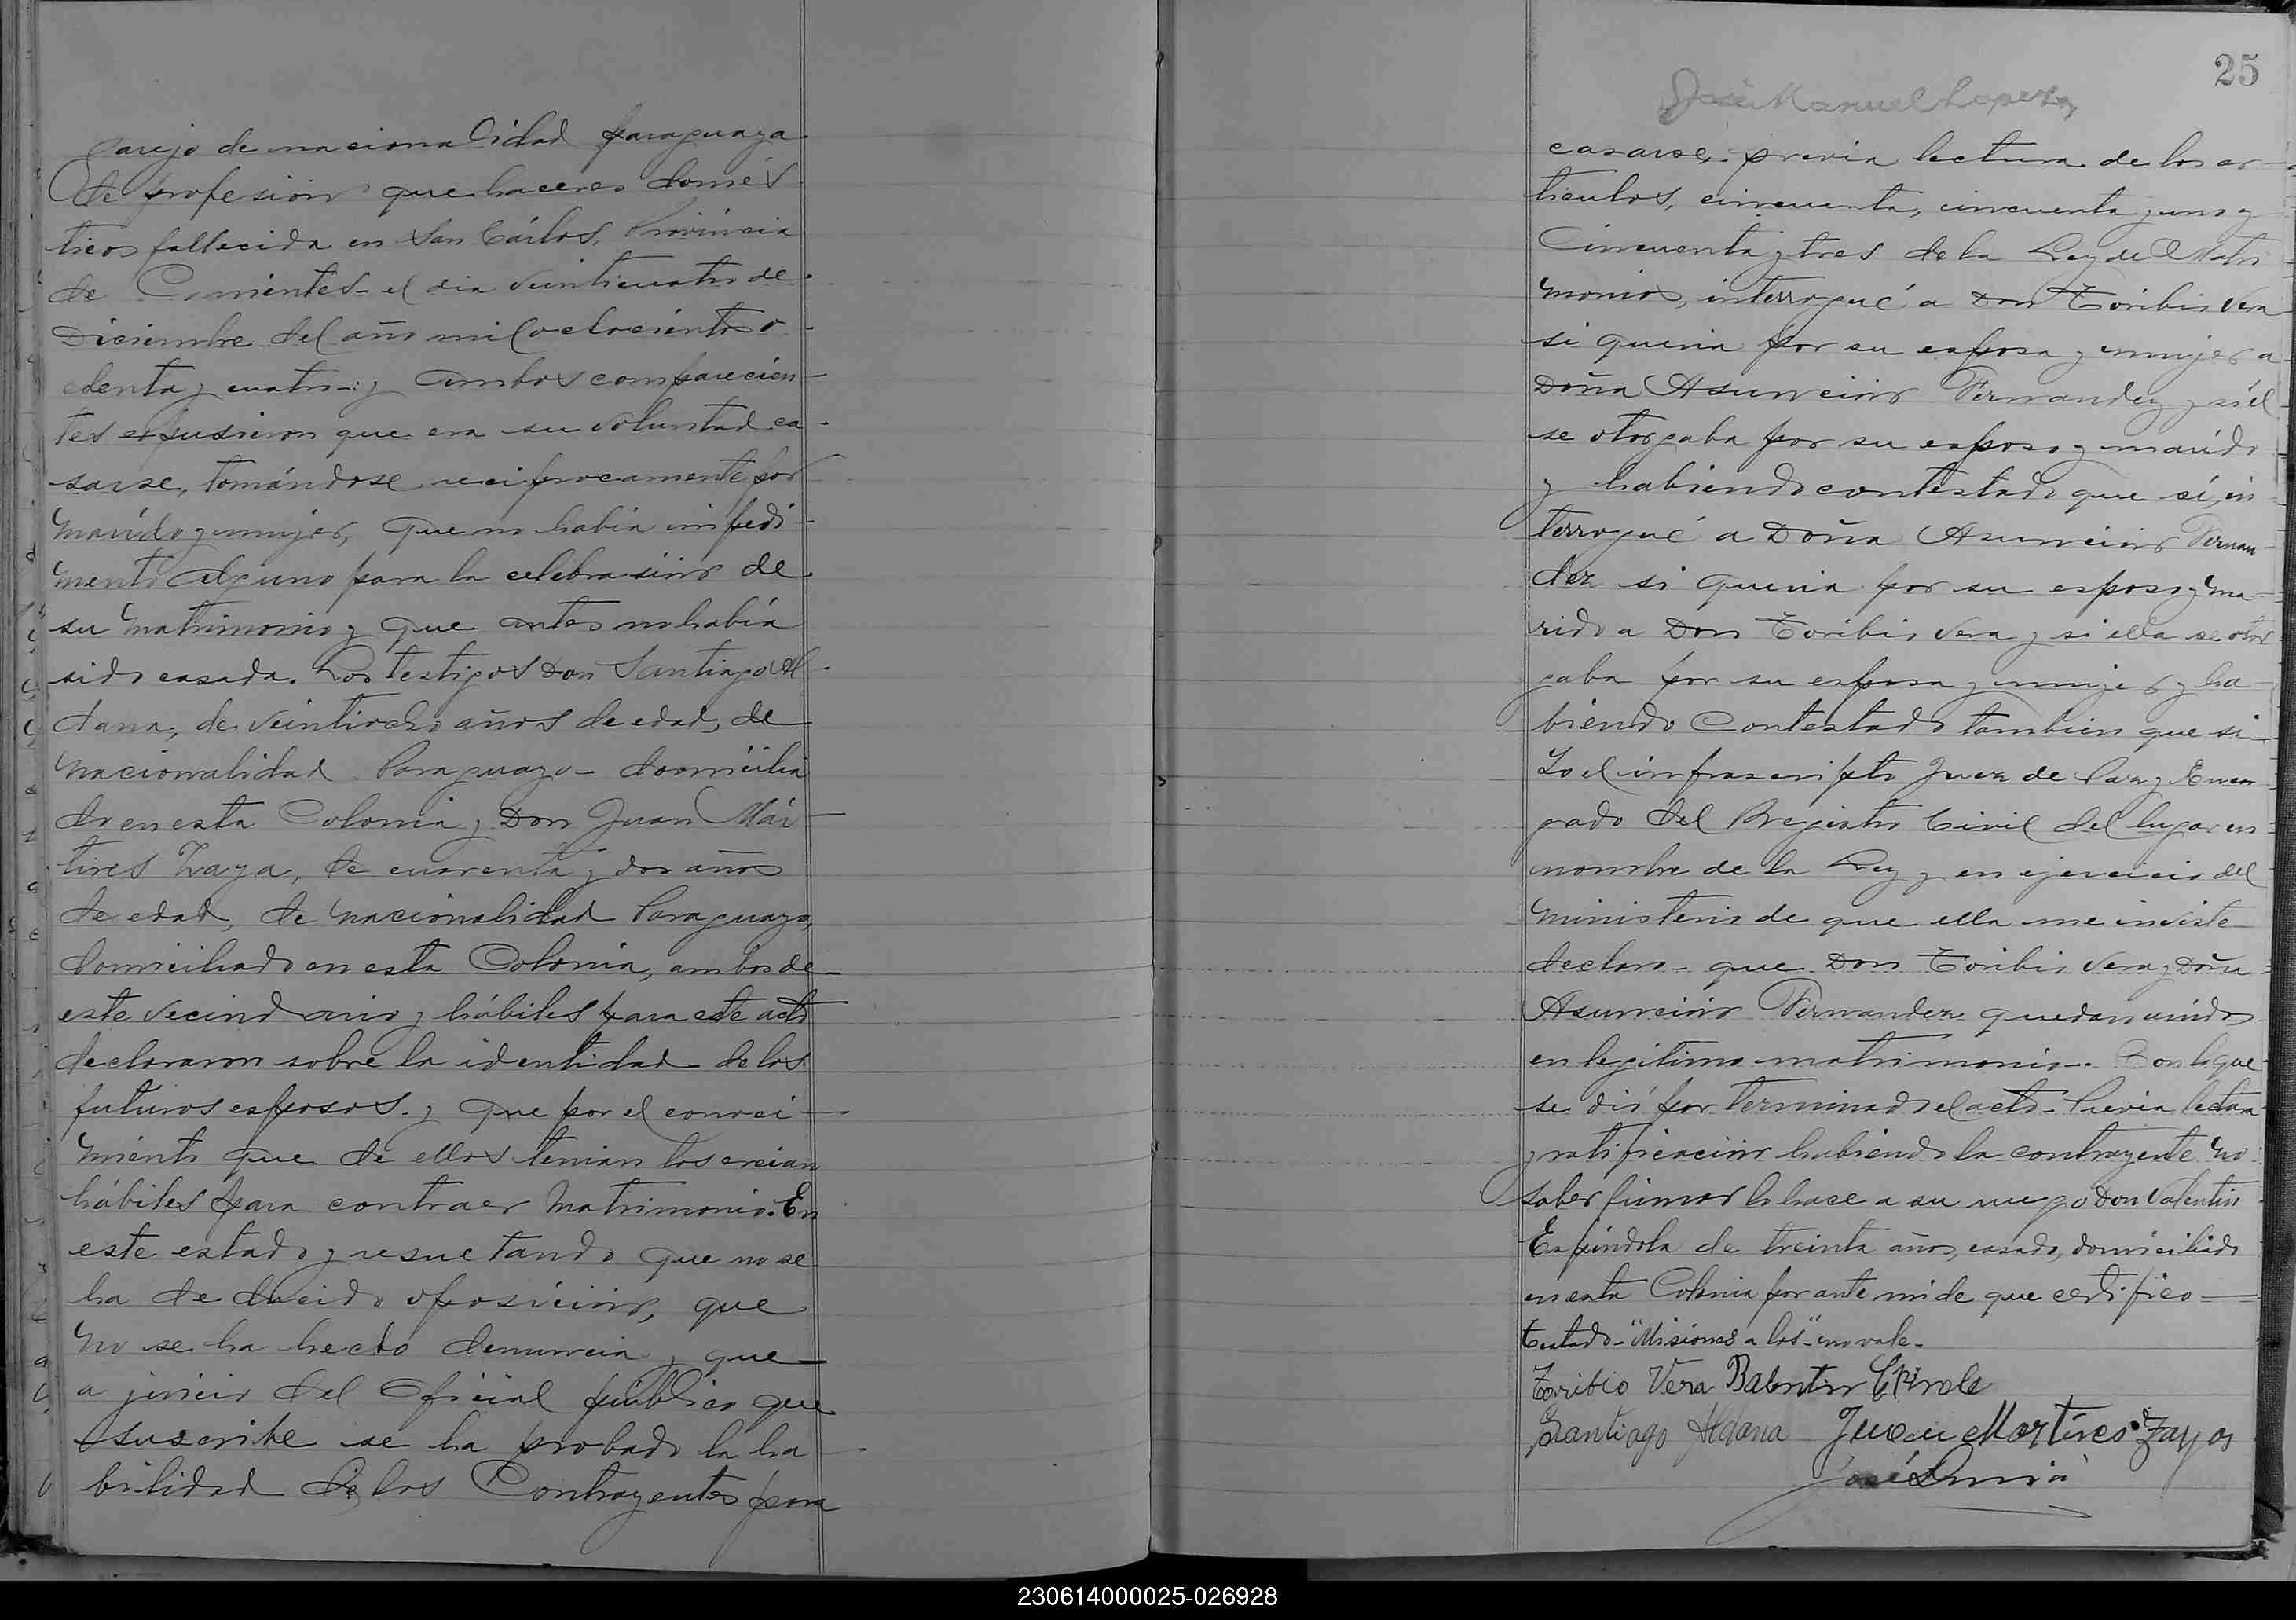 parejo de nacionalidad paraguaya
de profesion quehaceres domés
ticos fallecida en San Cárlos, Provincia
de Corrientes el dia veinticuatro de
Diciembre del año mil ochocientos o
chenta y cuatro y ambos comparecien
tes expusieron que era su voluntad ca
sarse, tomándose reciprocamente por
marido y mujer, que no había impedi
mento alguno para la celebrasión de
su matrimonio y que antes no había
sido casada. Los testigos Don Santiago Al
dana, de veintiocho años de edad, de
nacionalidad Paraguayo domicilia
do en esta Colonia y Don Juan Már
tires Zaya, de cuarenta y dos años
de edad, de nacionalidad Paraguayo,
domiciliado en esta Colonia, ambos de
este vecindario y hábiles para este acto
declararon sobre la identidad de los
futuros esposos y que por el conoci
miento que de ellos tenian los creian
hábiles para contraer matrimonio. En
este estado y resultando que no se
ha deducido oposicion, que
no se ha hecho denuncia y que
a juicio del oficial público que
suscribe se ha probado la ha
bilidad de los Contrayentes para
25
José Manuel Lopez
casarse, previa lectura de los ar
ticulos, cincuenta, cincuenta y uno y
Cincuenta y tres de la Ley de Matri
monio, interrogué a Don Toribio Vera
si queria por su esposa y mujer a
Doña Asuncion Fernandez y si él
se otorgaba por su esposo y marido
y habiendo contestado que sí, in
terrogué a Doña Asuncion Fernan
dez si queria por su esposo y ma
rido a Don Toribio Vera y si ella se otor
gaba por su esposa y mujer y ha
biendo Contestado tambien que si
Yo el infrascripto Juez de Paz y Encar
gado del Registro Civil del lugar en
nombre de la Ley y en ejercicio del
ministerio de que ella me inviste
declaro que Don Toribio Vera y Doña
Asuncion Fernandez quedan unidos
en legitimo matrimonio. Con lo que
se dió por terminado el acto. Previa lectura
y ratificacion habiendo la contrayente no
saber firmar lo hace a su ruego Don Valentin
Espindola de treinta años, casado, domiciliado
en esta Colonia por ante mi de que certifico
testado "Misiones a los" no vale.
Toribio Vera Balentin
Santiago Aldana Juan Martires Zayas
José
230614000025-026928